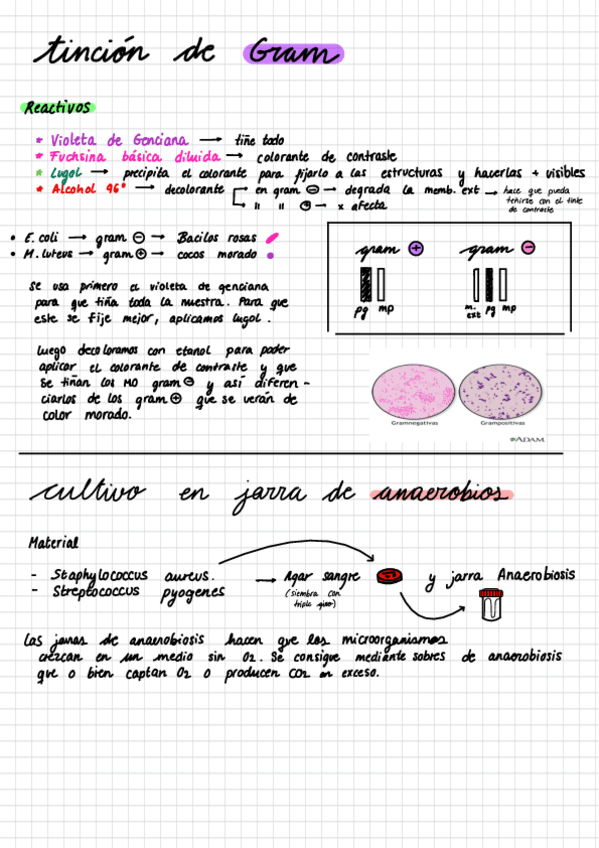 tinción de Gram
Reactivos
* Violeta de Genciana → tiñe todo
* Fuchsina básica diluida → colorante de contraste
* Lugol → precipita el colorante para fijarlo a las estructuras y hacerlas + visibles
* Alcohol 96° → decolorante → en gram ⊖ → degrada la memb. ext → hace que pueda
teñirse con el tinte
de contraste
→ " " ⊕ → x afecta
• E. coli → gram ⊖ → Bacilos rosas
• M. luteus → gram ⊕ → cocos morado
gram ⊕ gram ⊖
pg mp m. ext pg mp
Se usa primero el violeta de genciana
para que tiña toda la muestra. Para que
este se fije mejor, aplicamos lugol.
Luego decoloramos con etanol para poder
aplicar el colorante de contraste y que
se tiñan los MO gram ⊖ y así diferen-
ciarlos de los gram ⊕ que se verán de
color morado.
Gramnegativas Grampositivas
ADAM
cultivo en jarra de anaerobios
Material
- Staphylococcus aureus.
- Streptococcus pyogenes
→ Agar sangre y jarra Anaerobiosis
(siembra con
triple giro)
Las jarras de anaerobiosis hacen que los microorganismos
crezcan en un medio sin O2. Se consigue mediante sobres de anaerobiosis
que o bien captan O2 o producen CO2 en exceso.